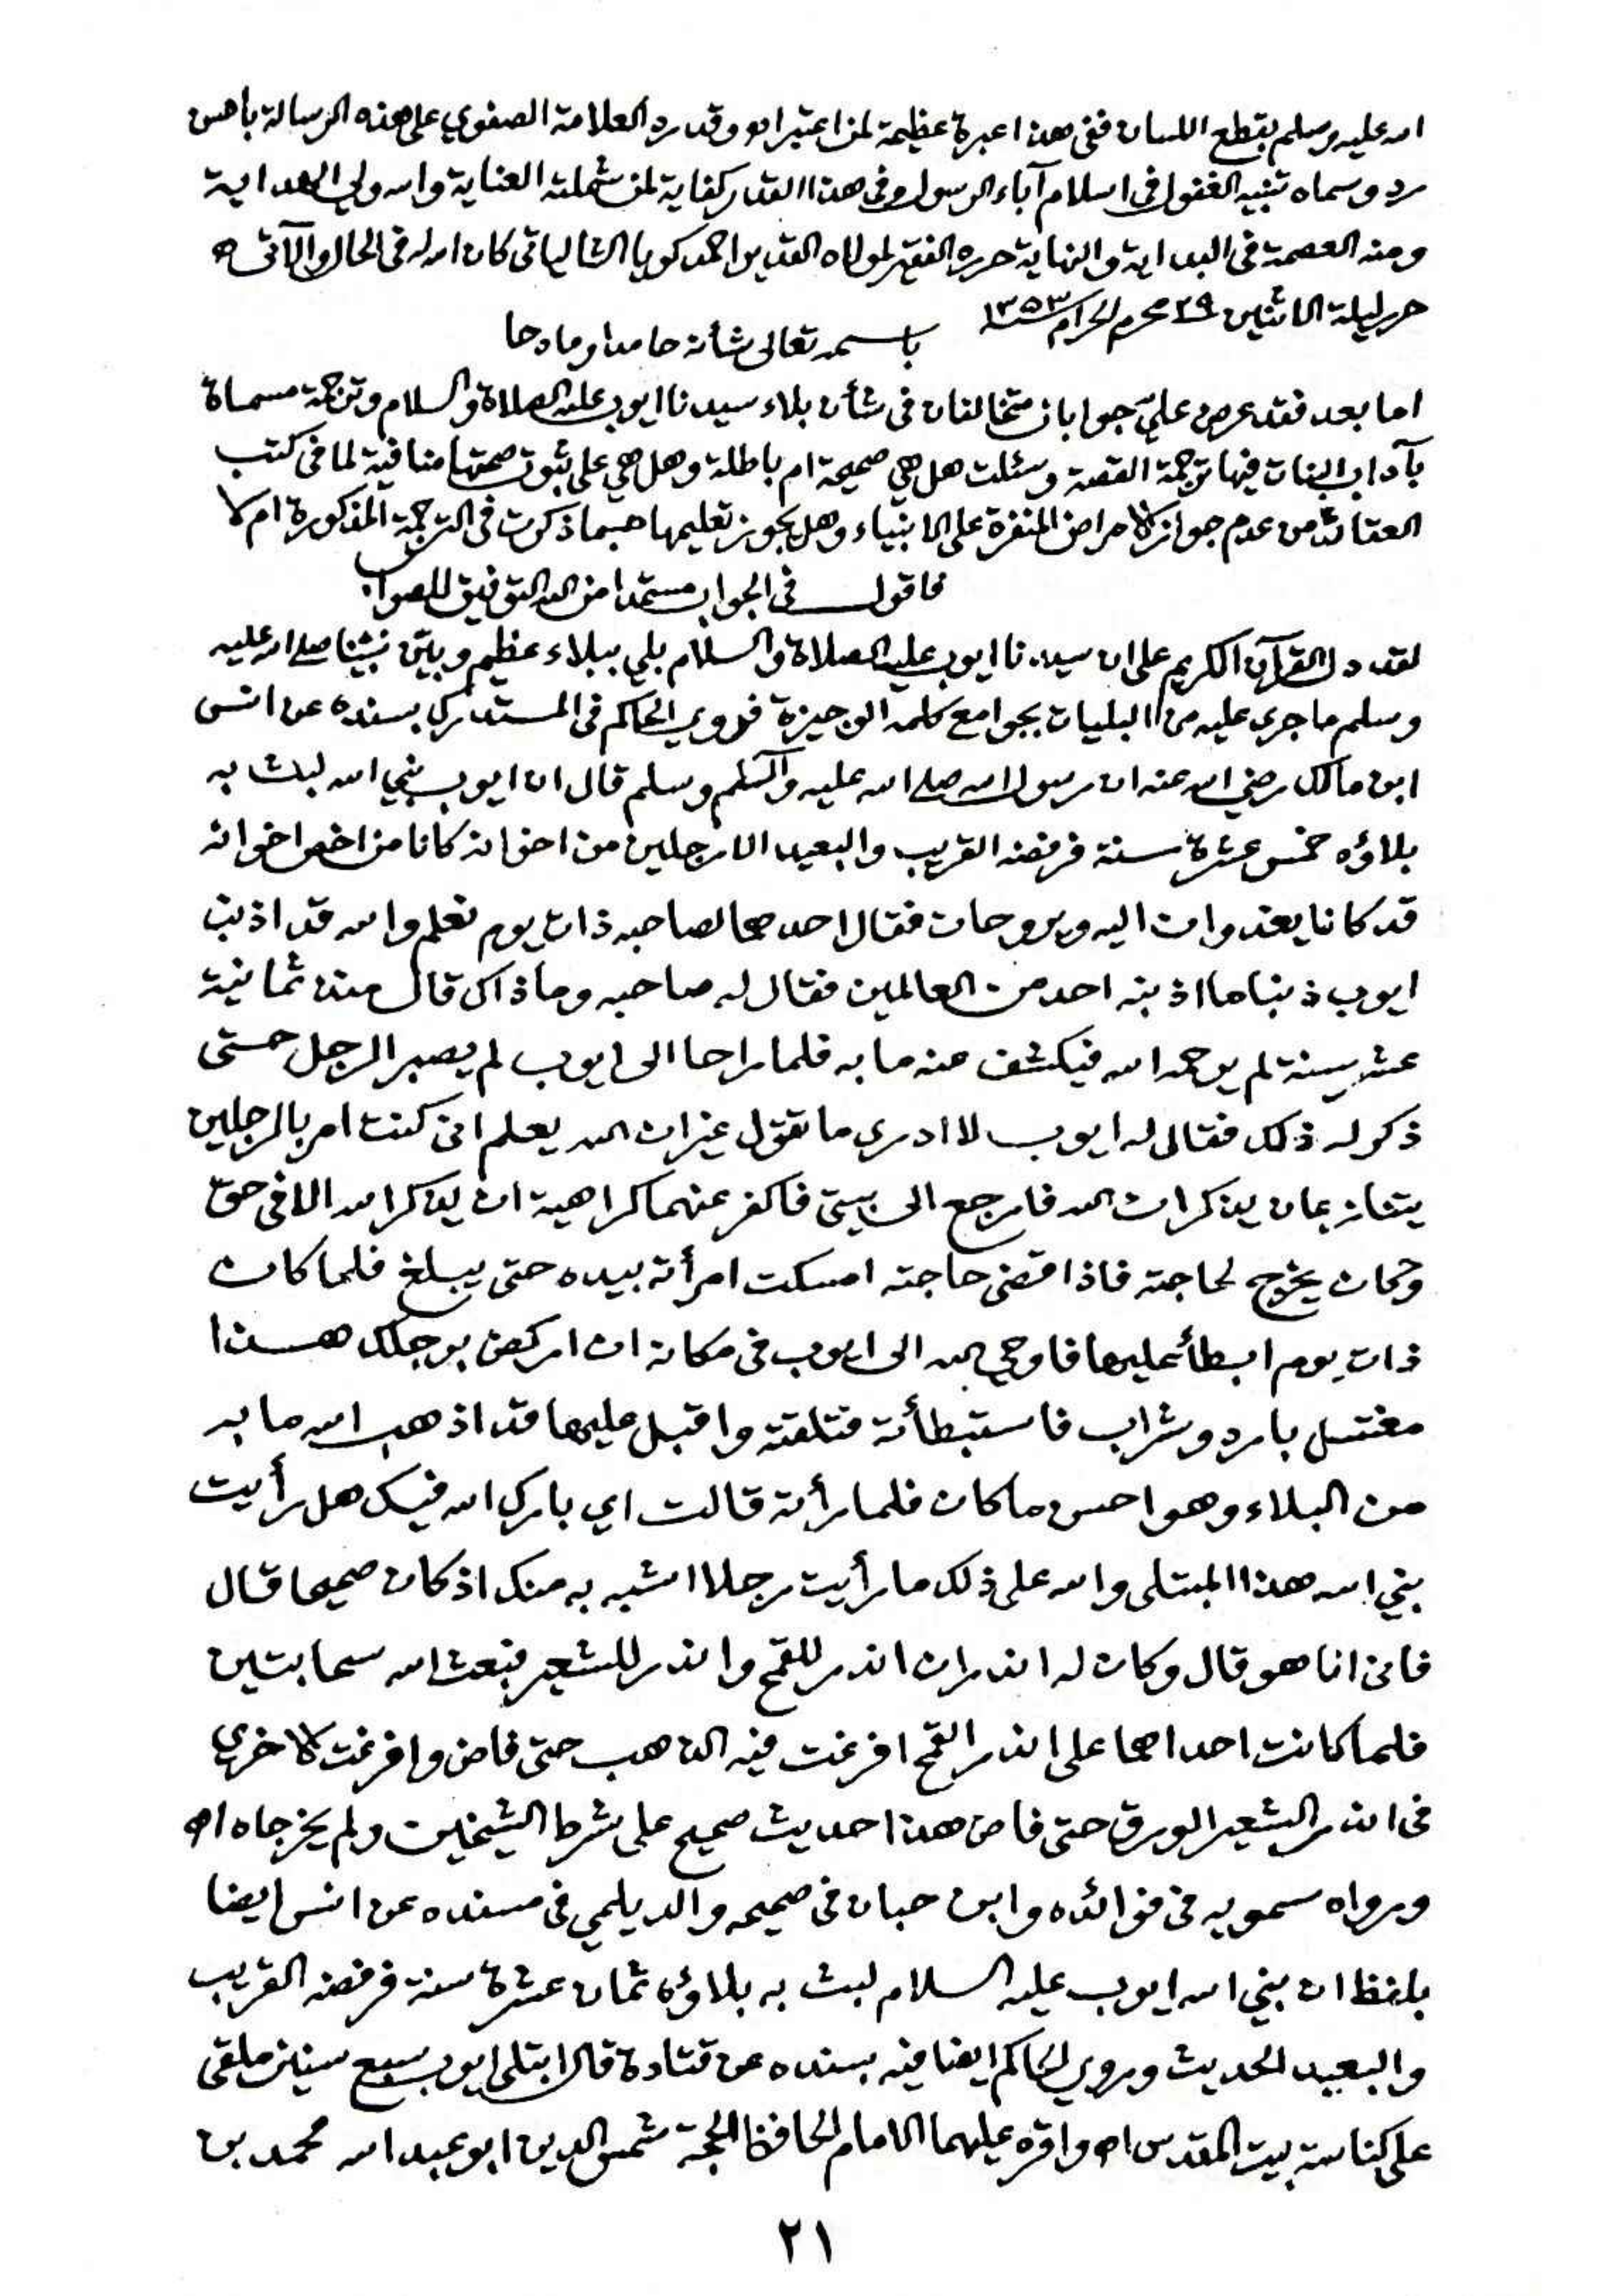 الله عليه وسلم بقطع اللسان ففى هذا عبرة عظيمة لمن اعتبر اه وقد رد العلامة الصفوي على هذه الرسالة باحسن
رد وسماه تنبيه الغفول فى اسلام آباء الرسول وفى هذا القدر كفاية لمن شملته العناية والله ولي الهداية
ومنه العصمة فى البداية والنهاية حرره الفقير لمولاه القدير احمد كويا الشالياتى كان الله له فى الحال والآتى ـه
حرر ليلة الاثنين ٢٩ محرم الحرام سنة ١٣٥٣
باسمه تعالى شأنه حامدا ومادحا
اما بعد فقد عرض عليّ جوابان متخالفان فى شأن بلاء سيدنا ايوب عليه الصلاة والسلام وترجمة مسماة
بآداب البنات فيها ترجمة القصة وسئلت هل هي صحيحة ام باطلة وهل هي على ثبوت صحتها منافية لما فى كتب
العقائد من عدم جواز الامراض المنفرة على الانبياء وهل يجوز تعليمها حسبما ذكرت فى الترجمة المذكورة ام لا
فاقول فى الجواب مستمدا من الله التوفيق للصواب
لقد دل القرآن الكريم على ان سيدنا ايوب عليه الصلاة والسلام بلي ببلاء عظيم وبيّن نبيّنا صلى الله عليه
وسلم ما جرى عليه من البليات بجوامع كلمه الوجيزة فروى الحاكم فى المستدرك بسنده عن انس
ابن مالك رضي الله عنه ان رسول الله صلى الله عليه وآله وسلم قال ان ايوب نبي الله لبث به
بلاؤه خمس عشرة سنة فرفضه القريب والبعيد الا رجلين من اخوانه كانا من اخص اخوانه
قد كانا يغدوان اليه ويروحان فقال احدهما لصاحبه ذات يوم نعلم والله قد اذنب
ايوب ذنبا ما اذنبه احد من العالمين فقال له صاحبه وما ذاك قال منذ ثمانية
عشر سنة لم يرحمه الله فيكشف عنه ما به فلما راحا الى ايوب لم يصبر الرجل حتى
ذكر له ذلك فقال له ايوب لا ادرى ما تقول غير ان الله يعلم انى كنت امر بالرجلين
يتنازعان يذكران الله فارجع الى بيتى فاكفر عنهما كراهية ان يذكر الله الا فى حق
وكان يخرج لحاجته فاذا قضى حاجته امسكت امرأته بيده حتى يبلغ فلما كان
ذات يوم ابطأ عليها فاوحى الله الى ايوب فى مكانه ان اركض برجلك هـذا
مغتسل بارد وشراب فاستبطأته فتلقته واقبل عليها قد اذهب الله ما به
من البلاء وهو احسن ما كان فلما رأته قالت اي بارك الله فيك هل رأيت
نبي الله هذا المبتلى والله على ذلك ما رأيت رجلا اشبه به منك اذ كان صحيحا قال
فانى انا هو قال وكان له اندران اندر للقمح واندر للشعير فبعث الله سحابتين
فلما كانت احداهما على اندر القمح افرغت فيه الذهب حتى فاض وافرغت الاخرى
فى اندر الشعير الورق حتى فاض هذا حديث صحيح على شرط الشيخين ولم يخرجاه اه
ورواه سمويه فى فوائده وابن حبان فى صحيحه والديلمي فى مسنده عن انس ايضا
بلفظ ان نبي الله ايوب عليه السلام لبث به بلاؤه ثمان عشرة سنة فرفضه القريب
والبعيد الحديث وروى الحاكم ايضا فيه بسنده عن قتادة قال ابتلى ايوب سبع سنين ملقى
على كناسة بيت المقدس اه واقره عليهما الامام الحافظ الحجة شمس الدين ابو عبد الله محمد بن
٢١